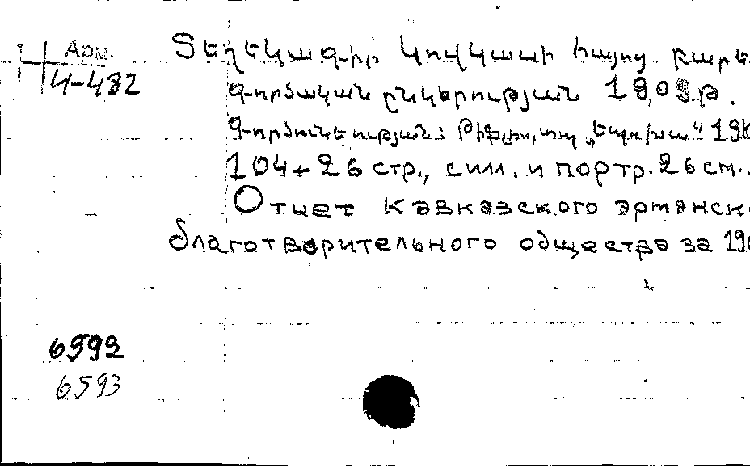 Арм.
4-482
Տեղեկագիր Կովկասի հայոց բարե
գործական ընկերության 1909թ.
Գործունեության: Թիֆլիս, տպ „Էպոխա“ 19
104 + 26 стр., илл. и портр. 26 см.
Отчет Кавказского армянск
благотворительного общества за 19
6593
6593